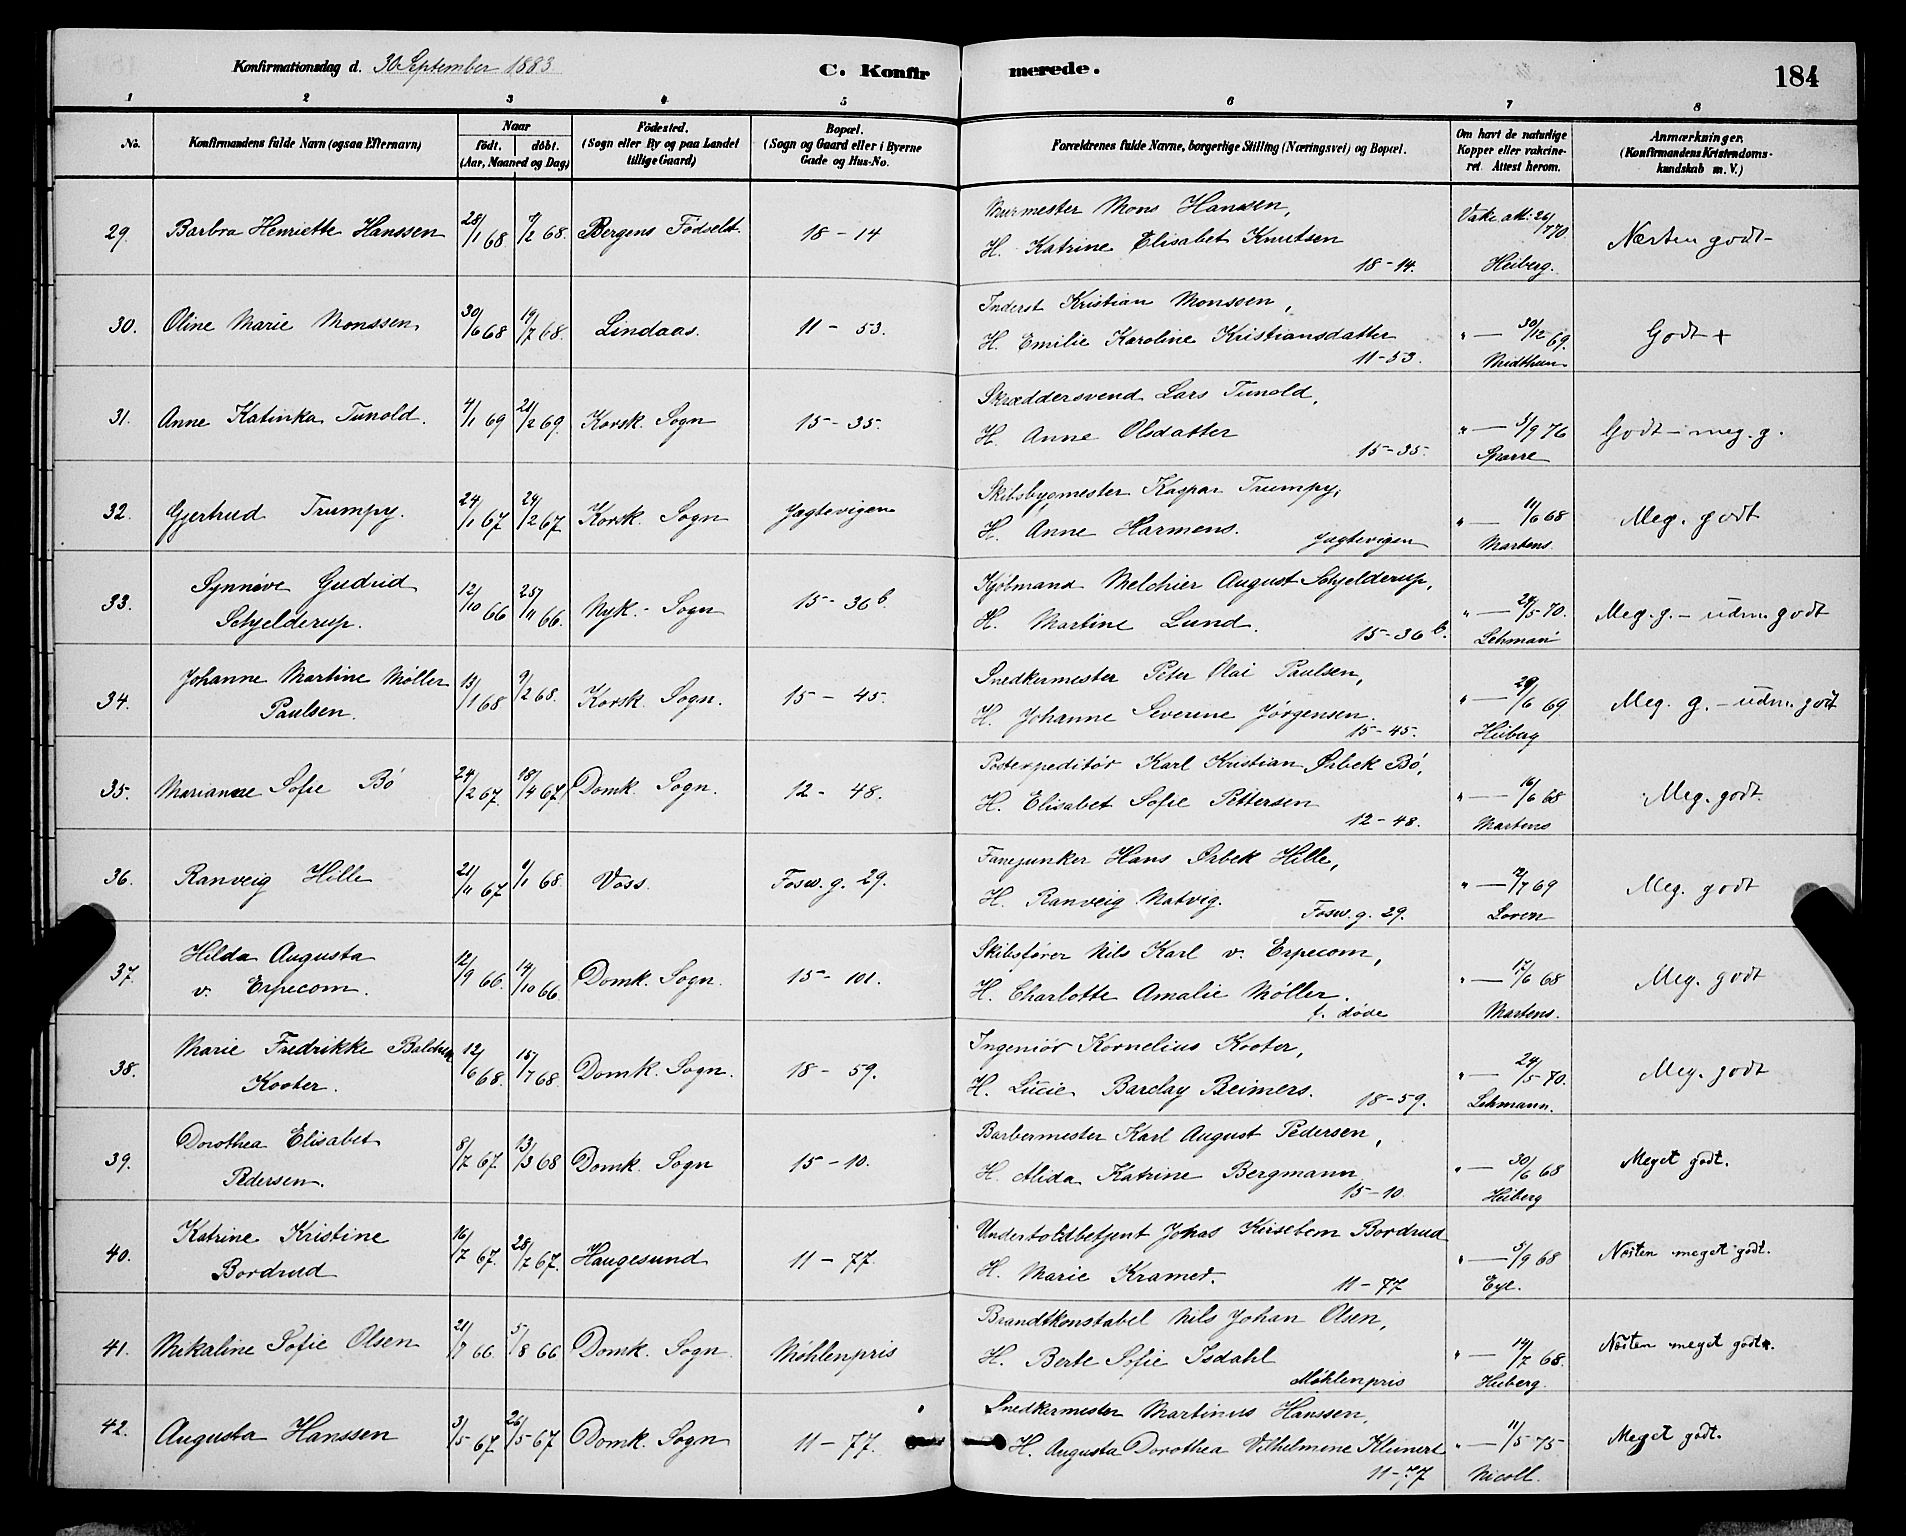 Konfirmationsdag d. 30 September 1883
C. Konfirmerede.
184
1 2 3 4 5 6 7 8
No.
Konfirmandens fulde Navn (ogsaa Efternavn)
Naar
födt. döbt.
(Aar, Maaned og Dag)
Födested.
(Sogn eller By og paa Landet
tillige Gaard)
Bopæl.
(Sogn og Gaard eller i Byerne
Gade og Hus-No.
Forældrenes fulde Navne, borgerlige Stilling (Næringsvei) og Bopæl.
Om havt de naturlige
Kopper eller vakcine-
ret. Attest herom.
Anmærkninger,
(Konfirmandens Kristendoms-
kundskab m. V.)
29. Barbra Henriette Hanssen 28/1 68 9/2 68. Bergens Födselst. 18-14
Murmester Mons Hanssen,
H. Katrine Elisabet Knutsen
18-14.
Vakc. att: 26/7 70.
Heiberg.
Næsten godt-
30. Oline Marie Monssen 30/6 68 19/7 68. Lindaas. 11-53.
Inderst Kristian Monssen,
H. Emilie Karoline Kristiansdatter
11-53.
" — 30/12 69.
Midthun
Godt +
31. Anne Katinka Tunold. 4/1 69 21/2 69. Korsk. Sogn 15-35.
Skræddersvend Lars Tunold,
H. Anne Olsdatter
15-35.
" — 5/9 76
Sparre
Godt - meg. g.
32. Gjertrud Trumpy. 24/1 67 24/2 67 Korsk. Sogn Jægtevigen
Skibsbygmester Kaspar Trumpy,
H. Anne Harmens.
Jægtevigen
" — 11/6 68
Martens.
Meg. godt
33. Synnöve Gudrid
Schjelderup. 12/10 66 25/11 66. Nyk. - Sogn 15-36 b.
Kjöbmand Melchier August Schjelderup,
H. Martine Lund.
15-36 b.
" — 28/5 70.
Lehman
Meg. g. - udm. godt
34. Johanne Martine Møller
Paulsen. 13/1 68 9/2 68. Korsk. Sogn. 15-45.
Snedkermester Peter Olai Paulsen,
H. Johanne Severine Jørgensen.
15-45.
" — 29/6 69
Heiberg
Meg. g. - udm. godt
35. Marianne Sofie Bö 24/2 67. 18/4 67. Domk. Sogn. 12-48.
Postexpeditör Karl Kristian Ørbek Bö,
H. Elisabet Sofie Pettersen
12-48.
" — 16/6 68
Martens
Meg. godt.
36. Ranveig Hille 21/11 67 1/1 68. Voss. Fosw. g. 29.
Fanejunker Hans Ørbek Hille,
H. Ranveig Natvig.
Fosw. g. 29.
" — 12/7 69
Loven
Meg. godt
37. Hilda Augusta
v. Erpecom. 12/9 66. 14/10 66 Domk. Sogn. 15-101.
Skibsfører Nils Karl v. Erpecom,
H. Charlotte Amalie Møller.
døde
" — 17/6 68
Martens.
Meg. godt
38. Marie Fredrikke
Kooter. 12/6 68. 15/7 68. Domk. Sogn. 18-59.
Ingeniör Kornelius Kooter,
H. Lucie Barclay Beimers.
18-59.
" — 24/5 70.
Lehmann.
Meg. godt
39. Dorothea Elisabet
Pedersen. 8/7 67. 13/3 68 Domk. Sogn 15-10.
Barbermester Karl August Pedersen,
H. Alida Katrine Bergmann
15-10.
" — 30/6 68
Heiberg
Meget godt.
40. Katrine Kristine
Bordrud 16/7 67. 28/7 67. Haugesund 11-77.
Undertoldbetjent Johas Kirsebom Bordrud
H. Marie Kramer.
11-77
" — 5/9 68
Eyl.
Næsten meget godt.
41. Mikaline Sofie Olsen 21/7 66. 5/8 66 Domk. Sogn Møhlenpris
Brandtkonstabel Nils Johan Olsen,
H. Berte Sofie Isdahl
Møhlenpris
" — 14/7 68.
Heiberg.
Næsten meget godt.
42. Augusta Hanssen 3/5 67 26/5 67 Domk. Sogn 11-77.
Snedkermester Martinus Hanssen,
H. Augusta Dorothea Vilhelmine Kleinert
11-77
" — 11/5 75
Nicoll.
Meget godt.